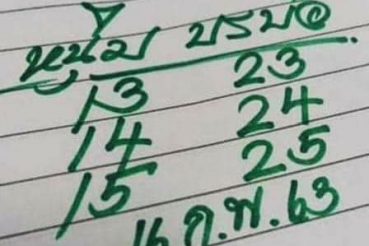 หนุ่ม บรบือ
13 23
14 24
15 25
16 ก.พ. 63